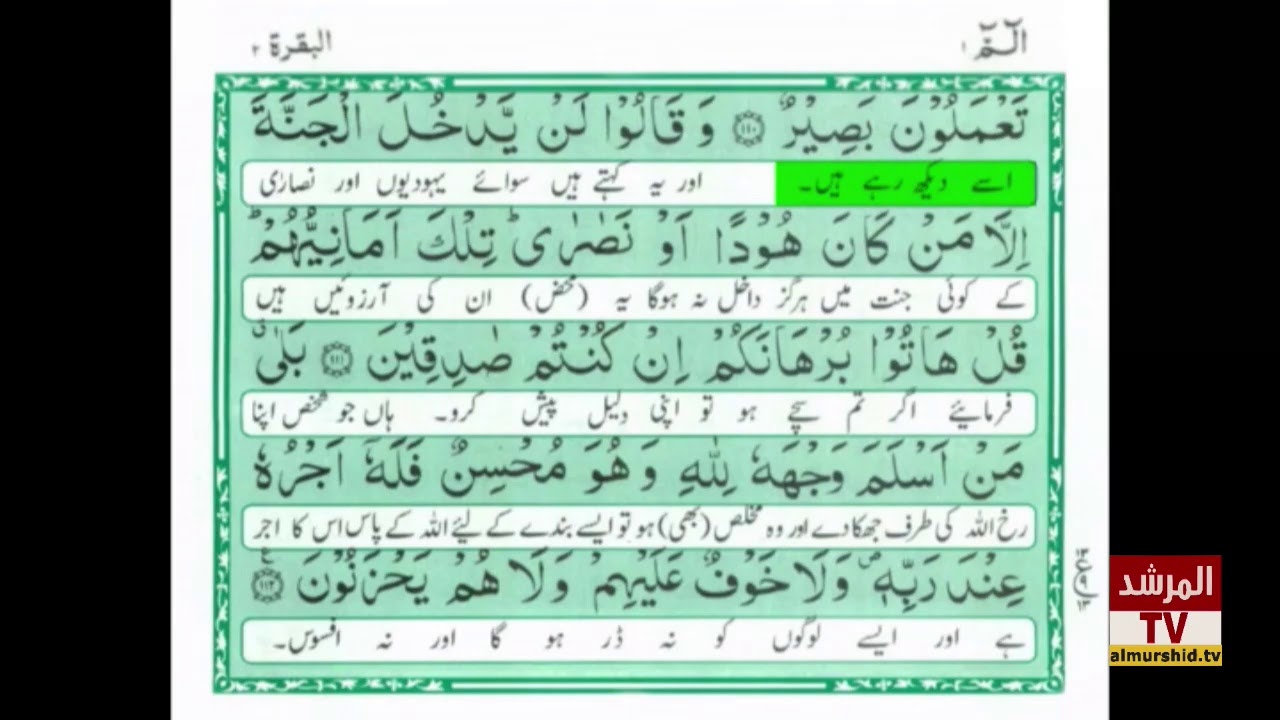 الٓمّٓ ۱
البقرة ۲
تَعْمَلُوْنَ بَصِيْرٌ ﴿۱۱۰﴾ وَ قَالُوْا لَنْ يَّدْخُلَ الْجَنَّةَ
اسے دیکھ رہے ہیں۔ اور یہ کہتے ہیں سوائے یہودیوں اور نصاریٰ
اِلَّا مَنْ كَانَ هُوْدًا اَوْ نَصٰرٰى ؕ تِلْكَ اَمَانِيُّهُمْ ؕ
کے کوئی جنت میں ہرگز داخل نہ ہوگا یہ (محض) ان کی آرزوئیں ہیں
قُلْ هَاتُوْا بُرْهَانَكُمْ اِنْ كُنْتُمْ صٰدِقِيْنَ ﴿۱۱۱﴾ بَلٰى ۗ
فرمایئے اگر تم سچے ہو تو اپنی دلیل پیش کرو۔ ہاں جو شخص اپنا
مَنْ اَسْلَمَ وَجْهَهٗ لِلّٰهِ وَ هُوَ مُحْسِنٌ فَلَهٗۤ اَجْرُهٗ
رخ اللہ کی طرف جھکا دے اور وہ مخلص (بھی) ہو تو ایسے بندے کے لیئے اللہ کے پاس اس کا اجر
عِنْدَ رَبِّهٖ ۪ وَلَا خَوْفٌ عَلَيْهِمْ وَلَا هُمْ يَحْزَنُوْنَ ﴿۱۱۲﴾
ہے اور ایسے لوگوں کو نہ ڈر ہو گا اور نہ افسوس۔
المرشد
TV
almurshid.tv